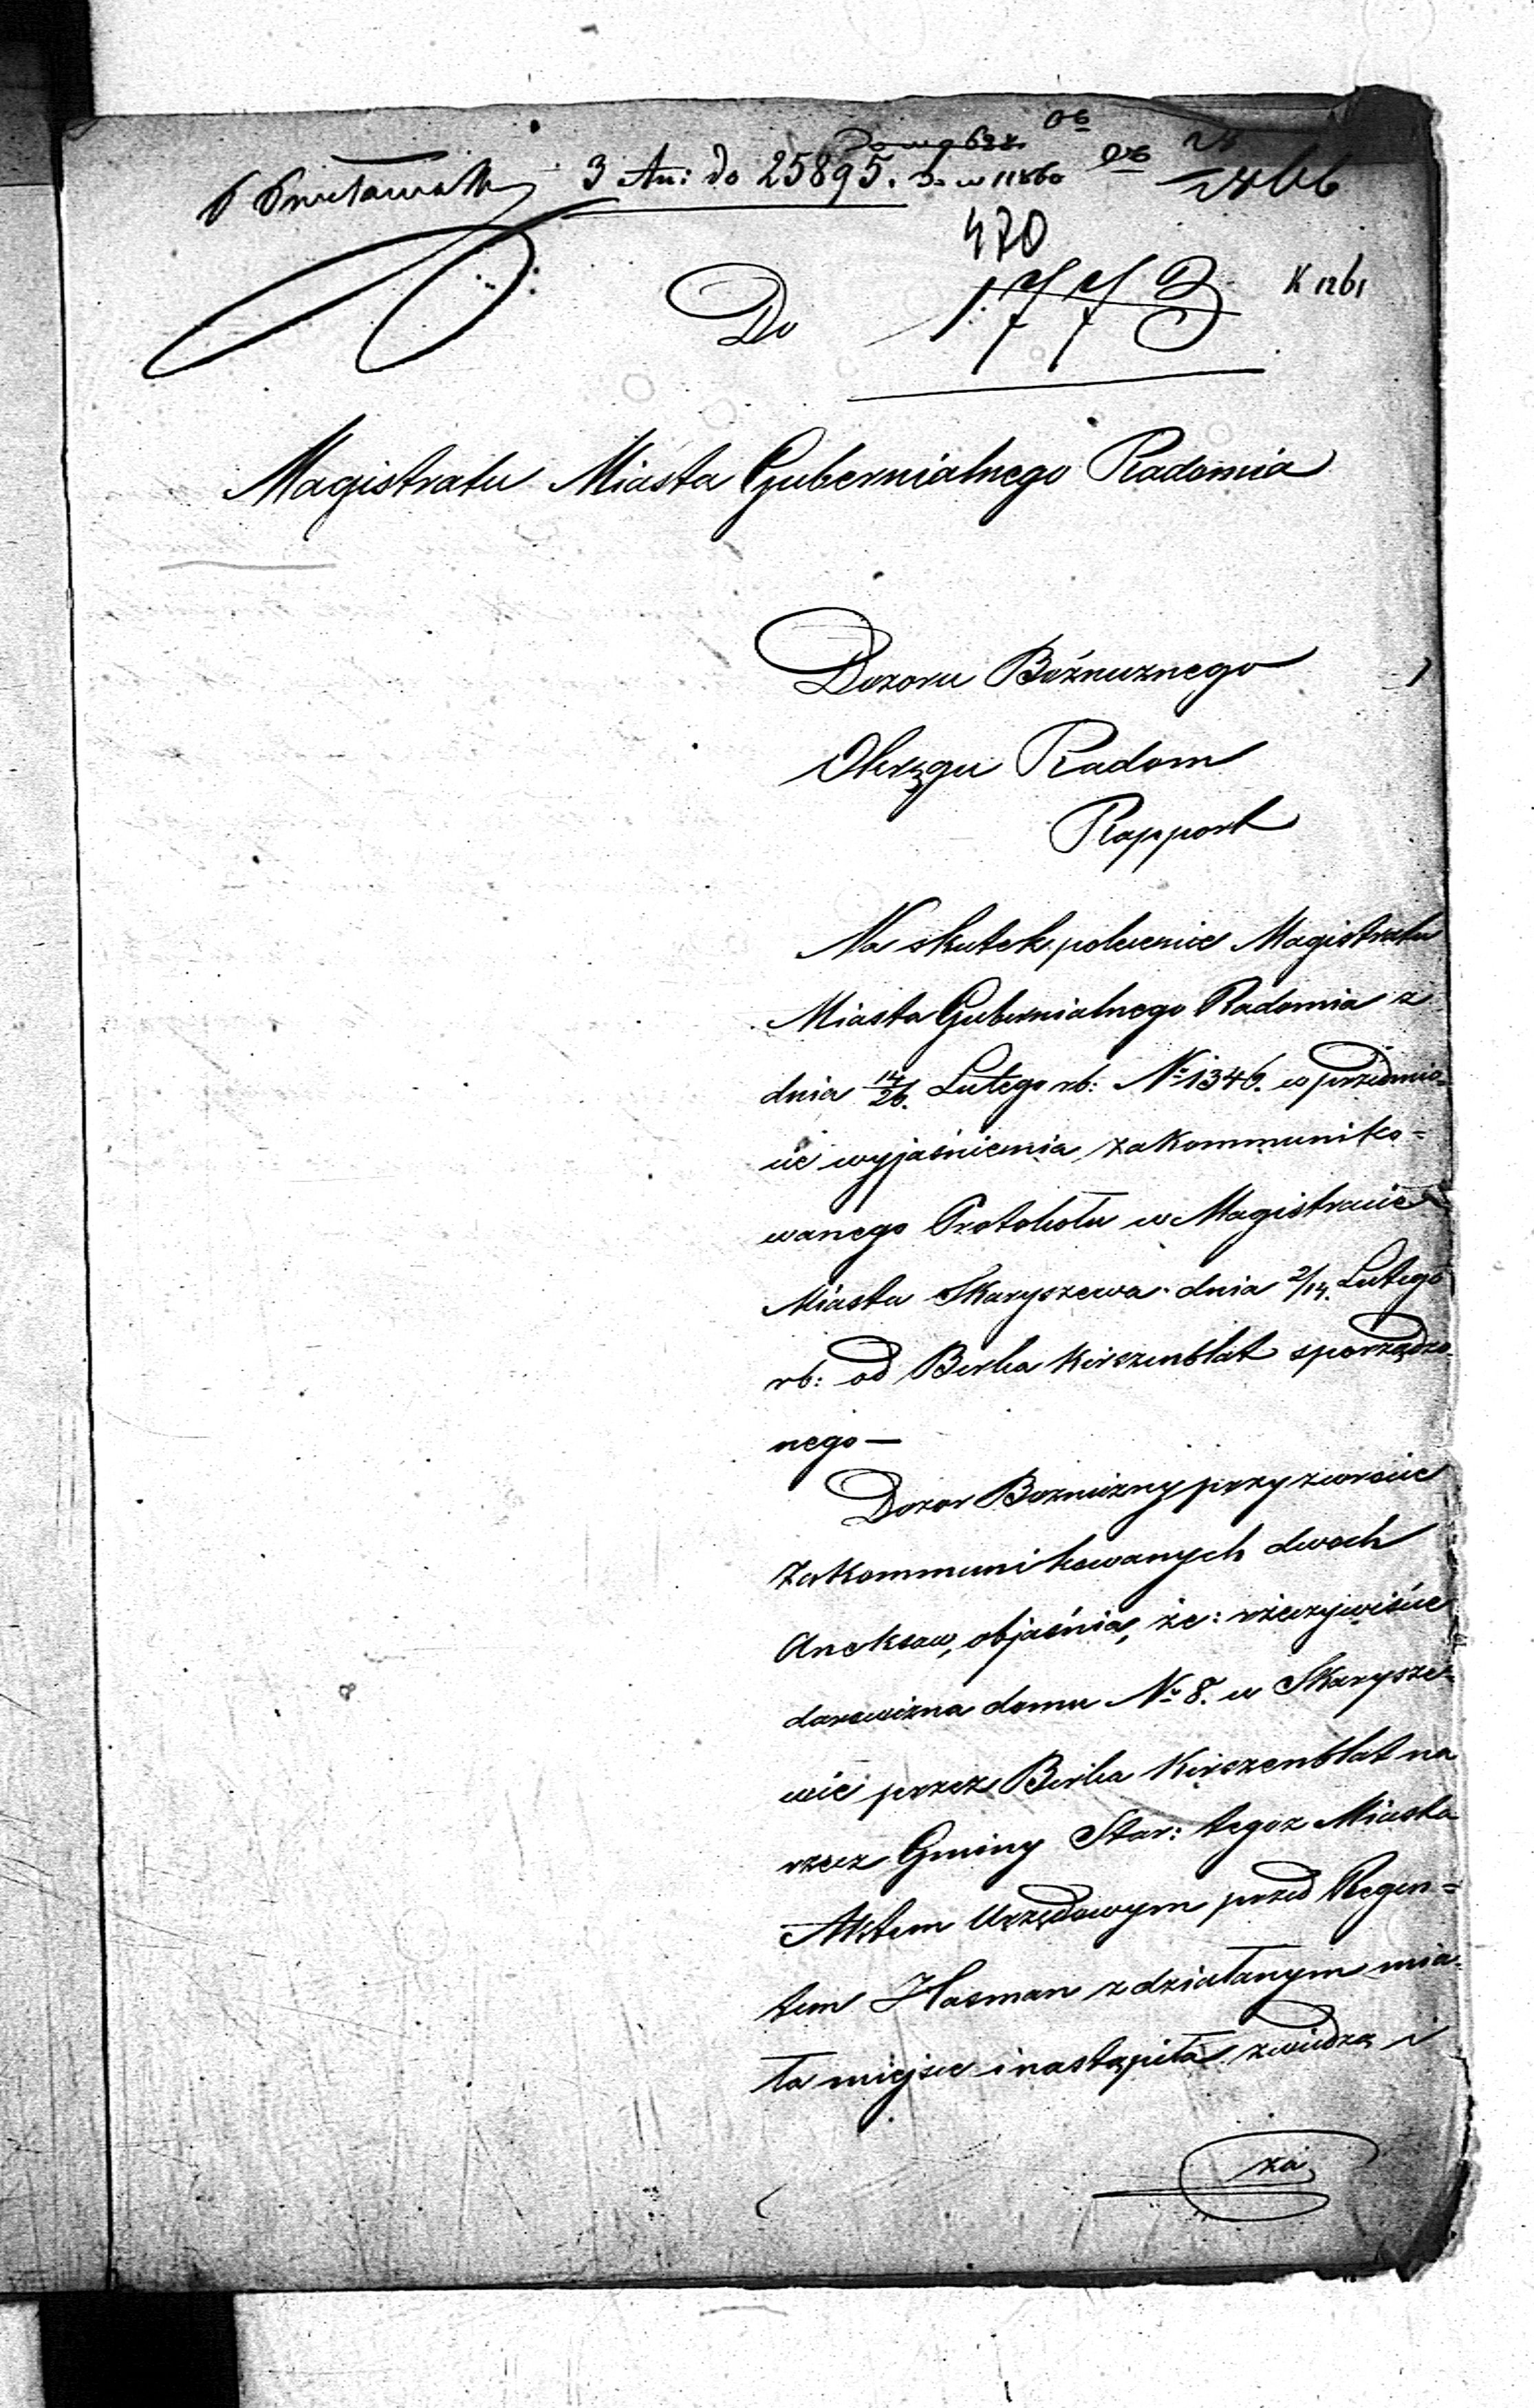 3 An: do 25895.
470
1773
K 1261
Do
Magistratu Miasta Gubernialnego Radomia
Dozoru Bóźnicznego
Okręgu Radom
Rapport
Na skutek polecenie Magistratu
Miasta Gubernialnego Radomia z
dnia 14/26. Lutego rb: No 1346. w przedmio=
cie wyjaśnienia, zakommuniko=
wanego Protokołu w Magistracie
Miasta Skaryszewa dnia 2/14. Lutego
rb: od Berka Kirszenblat sporządzo=
nego —
Dozor Bozniczny przy zwrocie
zakommunikowanych dwoch
Aneksow, objaśnia, że: rzeczywiście
darowizna domu No 8. w Skarysze=
wie przez Berka Kirszenblat na
rzecz Gminy Star: tegoz Miasta
Aktem Urzędowym przed Regen=
tem Hasman zdziałanym mia=
ła miejsce i nastąpiła z wiedzą i
za